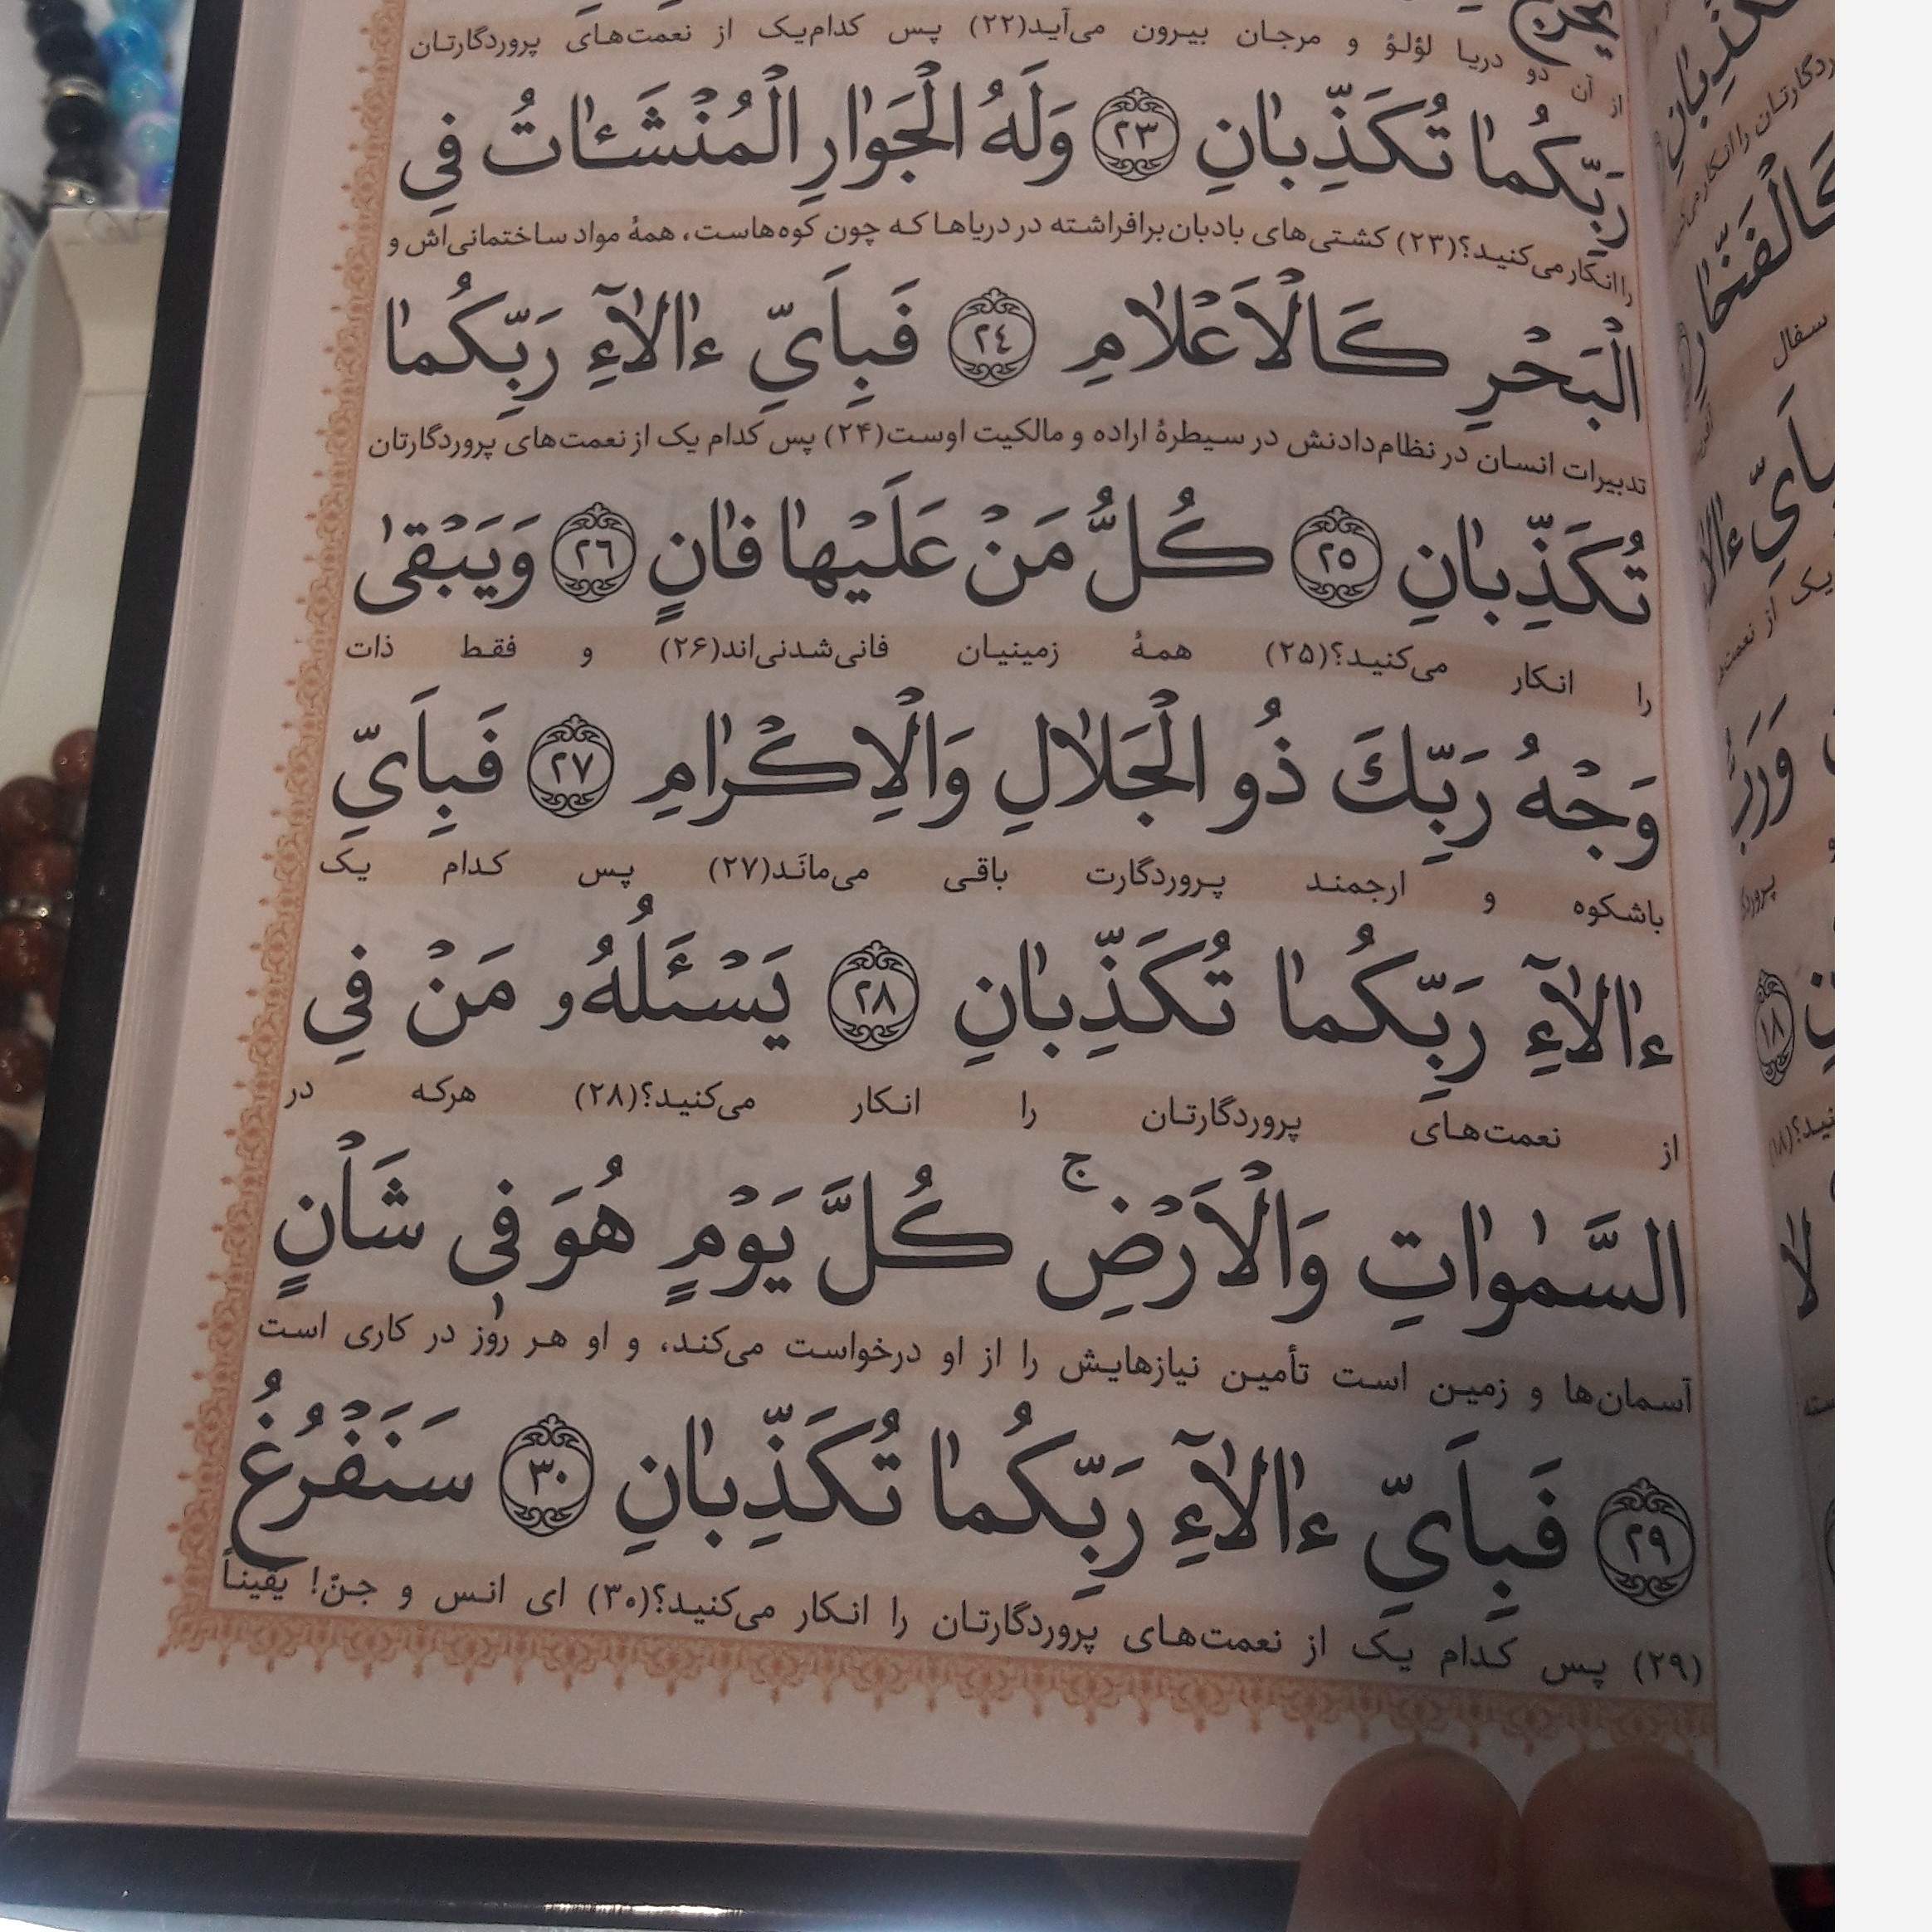 از آن دو دریا لؤلؤ و مرجان بیرون می‌آید(۲۲) پس کدام‌یک از نعمت‌های پروردگارتان
رَبِّكُمٰا تُكَذِّبٰانِ ٢٣ وَلَهُ الْجَوٰارِ الْمُنْشَـٰٔاتُ فِي
را انکار می‌کنید؟(۲۳) کشتی‌های بادبان برافراشته در دریاها که چون کوه‌هاست، همهٔ مواد ساختمانی‌اش و
الْبَحْرِ كَالْاَعْلٰامِ ٢٤ فَبِاَيِّ ءٰالٰآءِ رَبِّكُمٰا
تدبیرات انسان در نظام‌دادنش در سیطرهٔ اراده و مالکیت اوست(۲۴) پس کدام یک از نعمت‌های پروردگارتان
تُكَذِّبٰانِ ٢٥ كُلُّ مَنْ عَلَيْهٰا فٰانٍ ٢٦ وَيَبْقىٰ
را انکار می‌کنید؟(۲۵) همهٔ زمینیان فانی‌شدنی‌اند(۲۶) و فقط ذات
وَجْهُ رَبِّكَ ذُو الْجَلٰالِ وَالْاِكْرٰامِ ٢٧ فَبِاَيِّ
باشکوه و ارجمند پروردگارت باقی می‌مانَد(۲۷) پس کدام یک
ءٰالٰآءِ رَبِّكُمٰا تُكَذِّبٰانِ ٢٨ يَسْـَٔلُهُۥ مَنْ فِي
از نعمت‌های پروردگارتان را انکار می‌کنید؟(۲۸) هرکه در
السَّمٰوٰاتِ وَالْاَرْضِ ۚ كُلَّ يَوْمٍ هُوَ فِي شَاْنٍ
آسمان‌ها و زمین است تأمین نیازهایش را از او درخواست می‌کند، و او هر روز در کاری است
٢٩ فَبِاَيِّ ءٰالٰآءِ رَبِّكُمٰا تُكَذِّبٰانِ ٣٠ سَنَفْرُغُ
(۲۹) پس کدام یک از نعمت‌های پروردگارتان را انکار می‌کنید؟(۳۰) ای انس و جنّ! یقیناً